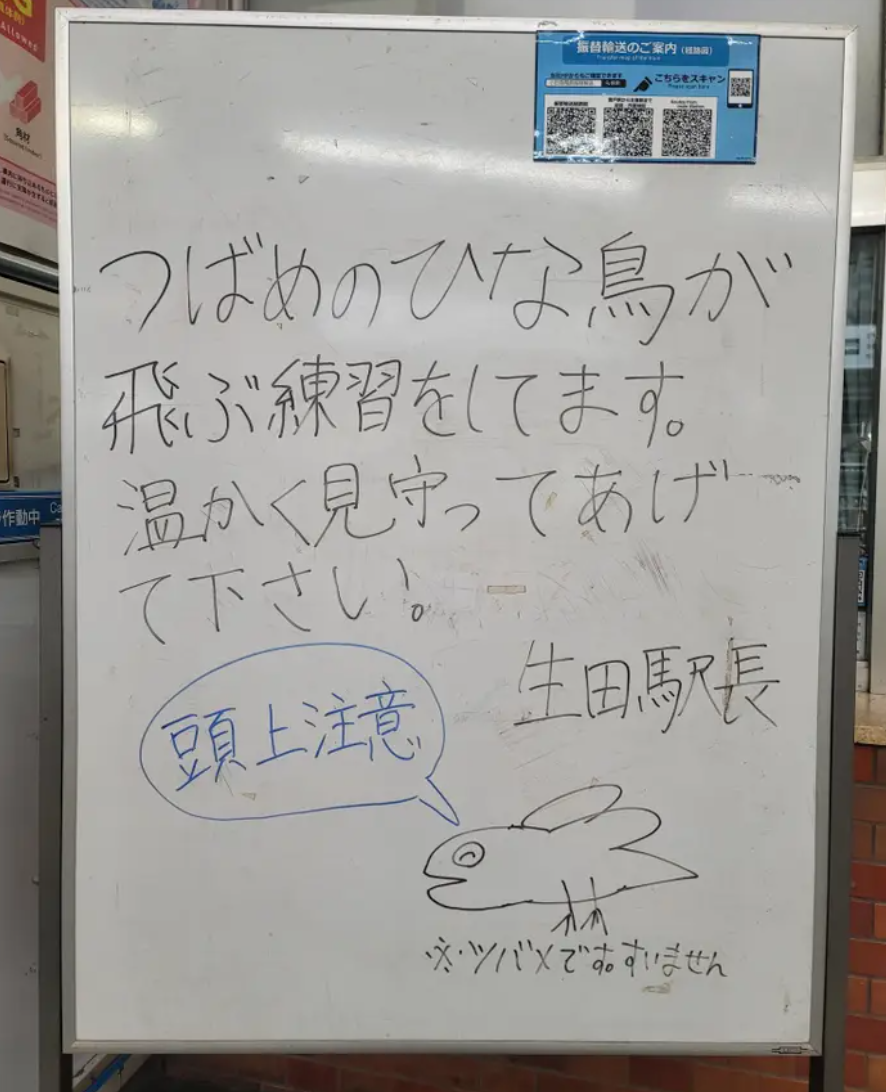 振替輸送のご案内（経路図）
こちらをスキャン
角材
つばめのひな鳥が
飛ぶ練習をしてます。
温かく見守ってあげ
て下さい！。
生田駅長
頭上注意
※ツバメです。すいません
作動中